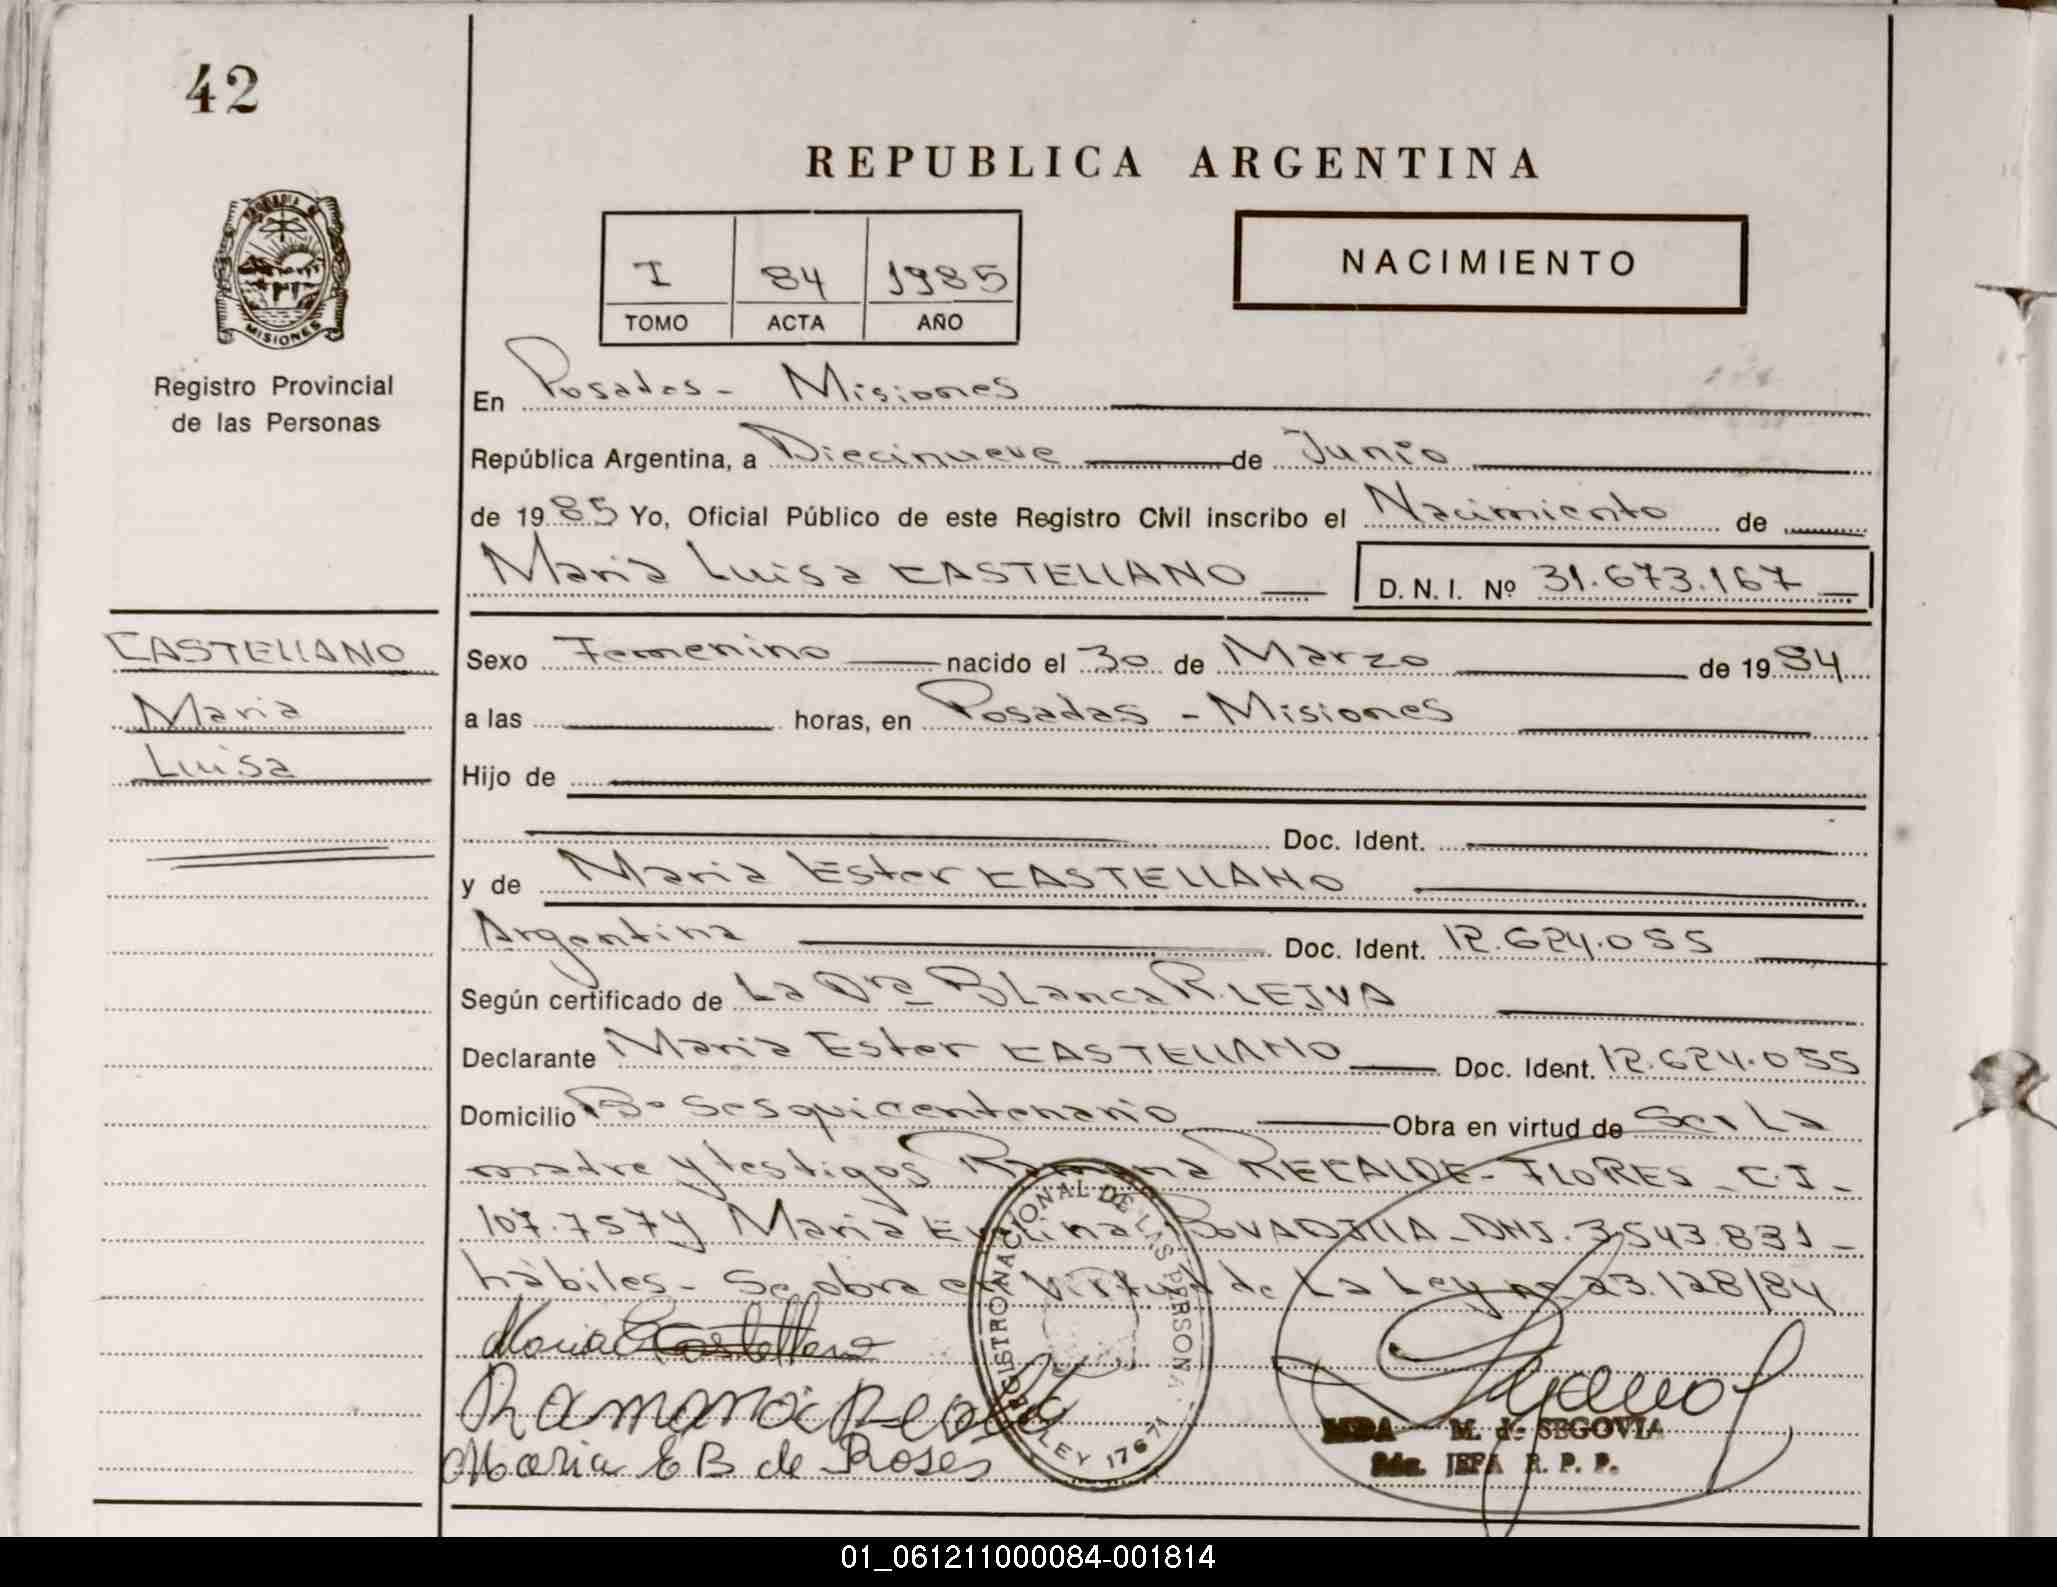 42
REPUBLICA ARGENTINA
I 84 1985
TOMO ACTA AÑO
NACIMIENTO
MISIONES
Registro Provincial
de las Personas
En Posadas - Misiones
República Argentina, a Diecinueve de Junio
de 1985 Yo, Oficial Público de este Registro Civil inscribo el Nacimiento de
Maria Luisa CASTELLANO D. N. I. Nº 31.673.167
CASTELLANO
Maria
Luisa
Sexo Femenino nacido el 30 de Marzo de 1984
a las horas, en Posadas - Misiones
Hijo de
Doc. Ident.
y de Maria Ester CASTELLANO
Argentina Doc. Ident. 12.624.055
Según certificado de La Dra Blanca R. LEIVA
Declarante Maria Ester CASTELLANO Doc. Ident. 12.624.055
Domicilio Bº Sesquicentenario Obra en virtud de Ser La
madre y testigos Ramona RECALDE - FLORES - C.I -
107.757 y Maria BOVADILLA - DNI. 3543.831 -
hábiles - Se obra en Virtud de La Ley nº 23.128/84
Maria E Castellano
Ramona Recalde
Maria E B de Roses
REGISTRO NACIONAL DE LAS PERSONAS
LEY 17671
M. de SEGOVIA
JEFA R. P. P.
01_061211000084-001814